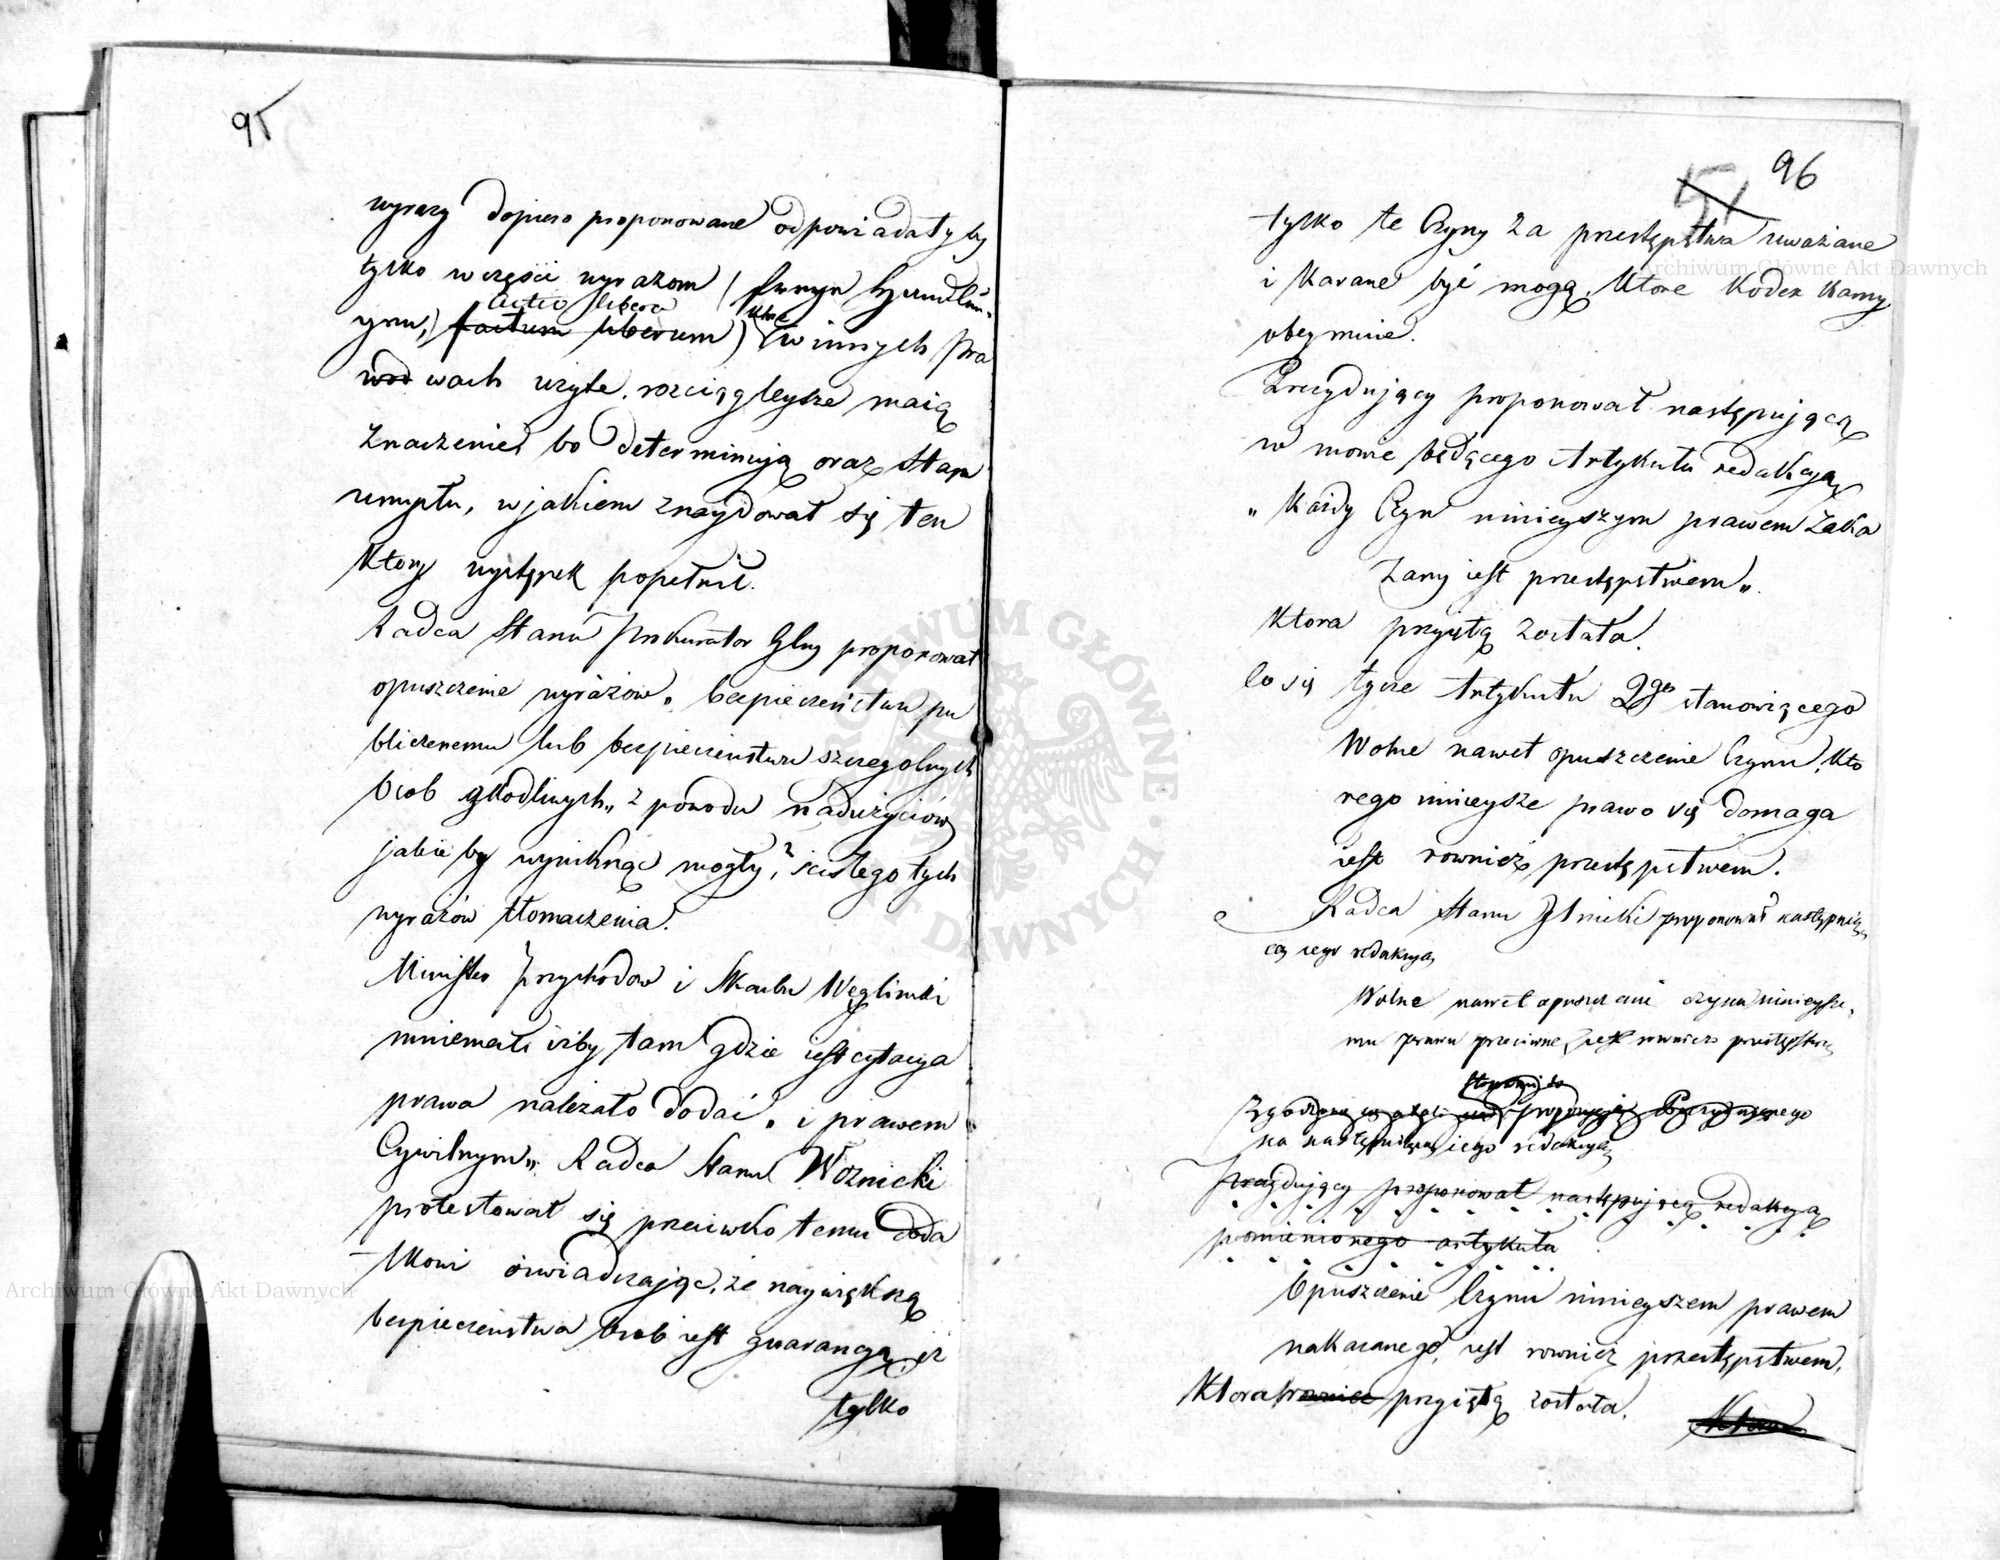 95
wyrazy dopiero proponowane odpowiadały by
tylko w części wyrazom (freye Handlun-
actio libera
gen,) factum liberum) które (w innych pra
wod wach użyte, rozciągleysze maią
znaczenie, bo determinują oraz stan
umysłu, w jakiem znaydował się ten
który występek popełnił.
Radca Stanu Prokurator Glny proponował
opuszczenie wyrazów „bezpieczeństwu pu
blicznemu lub bezpieczeństwu szczegolnych
Osob szkodliwych„ z powodu nadużyciów
jakie by wyniknąć mogły, z ścisłego tych
wyrazów tłomaczenia.
Minister Przychodow i Skarbu Węgliński
mniemał iżby tam gdzie iest cytacya
prawa należało dodać „i prawem
Cywilnym„ Radca Stanu Woźnicki
protestował się przeciwko temu doda
tkowi oświadczając, że naywiększą
bezpieczeństwa Osob iest gwarancyą, iż
tylko
51
96
tylko te Czyny za przestępstwa uważane
i karane być mogą, które Kodex karny
obeymuie.
Prezydujący proponował następującą
w mowie będącego Artykułu redakcyą
„ Każdy Czyn ninieyszym prawem zaka
zany iest przestępstwem„
Ktora przyiętą została.
Co się tycze Artykułu 2go stanowiącego
Wolne nawet opuszczenie Czynu, kto
rego ninieysze prawo się domaga
iest rownież przestępstwem.
Radca Stanu proponował następuią
cą iego redakcyą
Wolne nawet opuszczenie czynu ninieysze-
mu prawu przeciwne, iest rownież przestępstwem
na następuiącą iego redakcyą
Prezydujący proponował następującą redakcyą
pomienionego artykułu
Opuszczenie Czynu ninieyszem prawem
nakazanego, iest rownież przestępstwem,
Ktora rownież przyiętą została.
Ktora